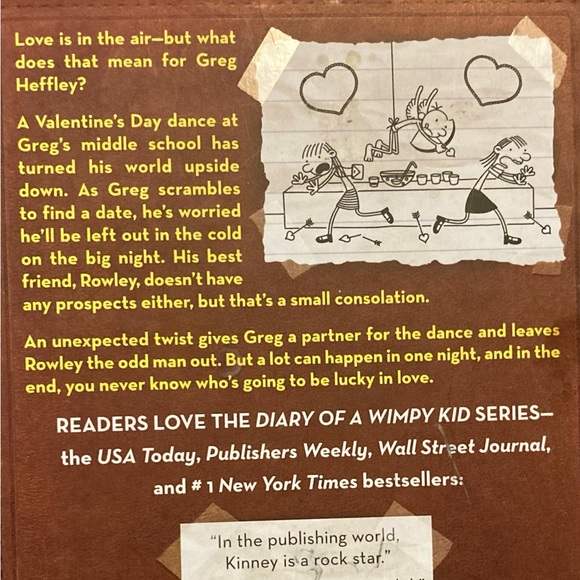 Love is in the air—but what
does that mean for Greg
Heffley?
A Valentine's Day dance at
Greg's middle school has
turned his world upside
down. As Greg scrambles
to find a date, he's worried
he'll be left out in the cold
on the big night. His best
friend, Rowley, doesn't have
any prospects either, but that's a small consolation.
An unexpected twist gives Greg a partner for the dance and leaves
Rowley the odd man out. But a lot can happen in one night, and in the
end, you never know who's going to be lucky in love.
READERS LOVE THE DIARY OF A WIMPY KID SERIES—
the USA Today, Publishers Weekly, Wall Street Journal,
and #1 New York Times bestsellers:
"In the publishing world,
Kinney is a rock star."